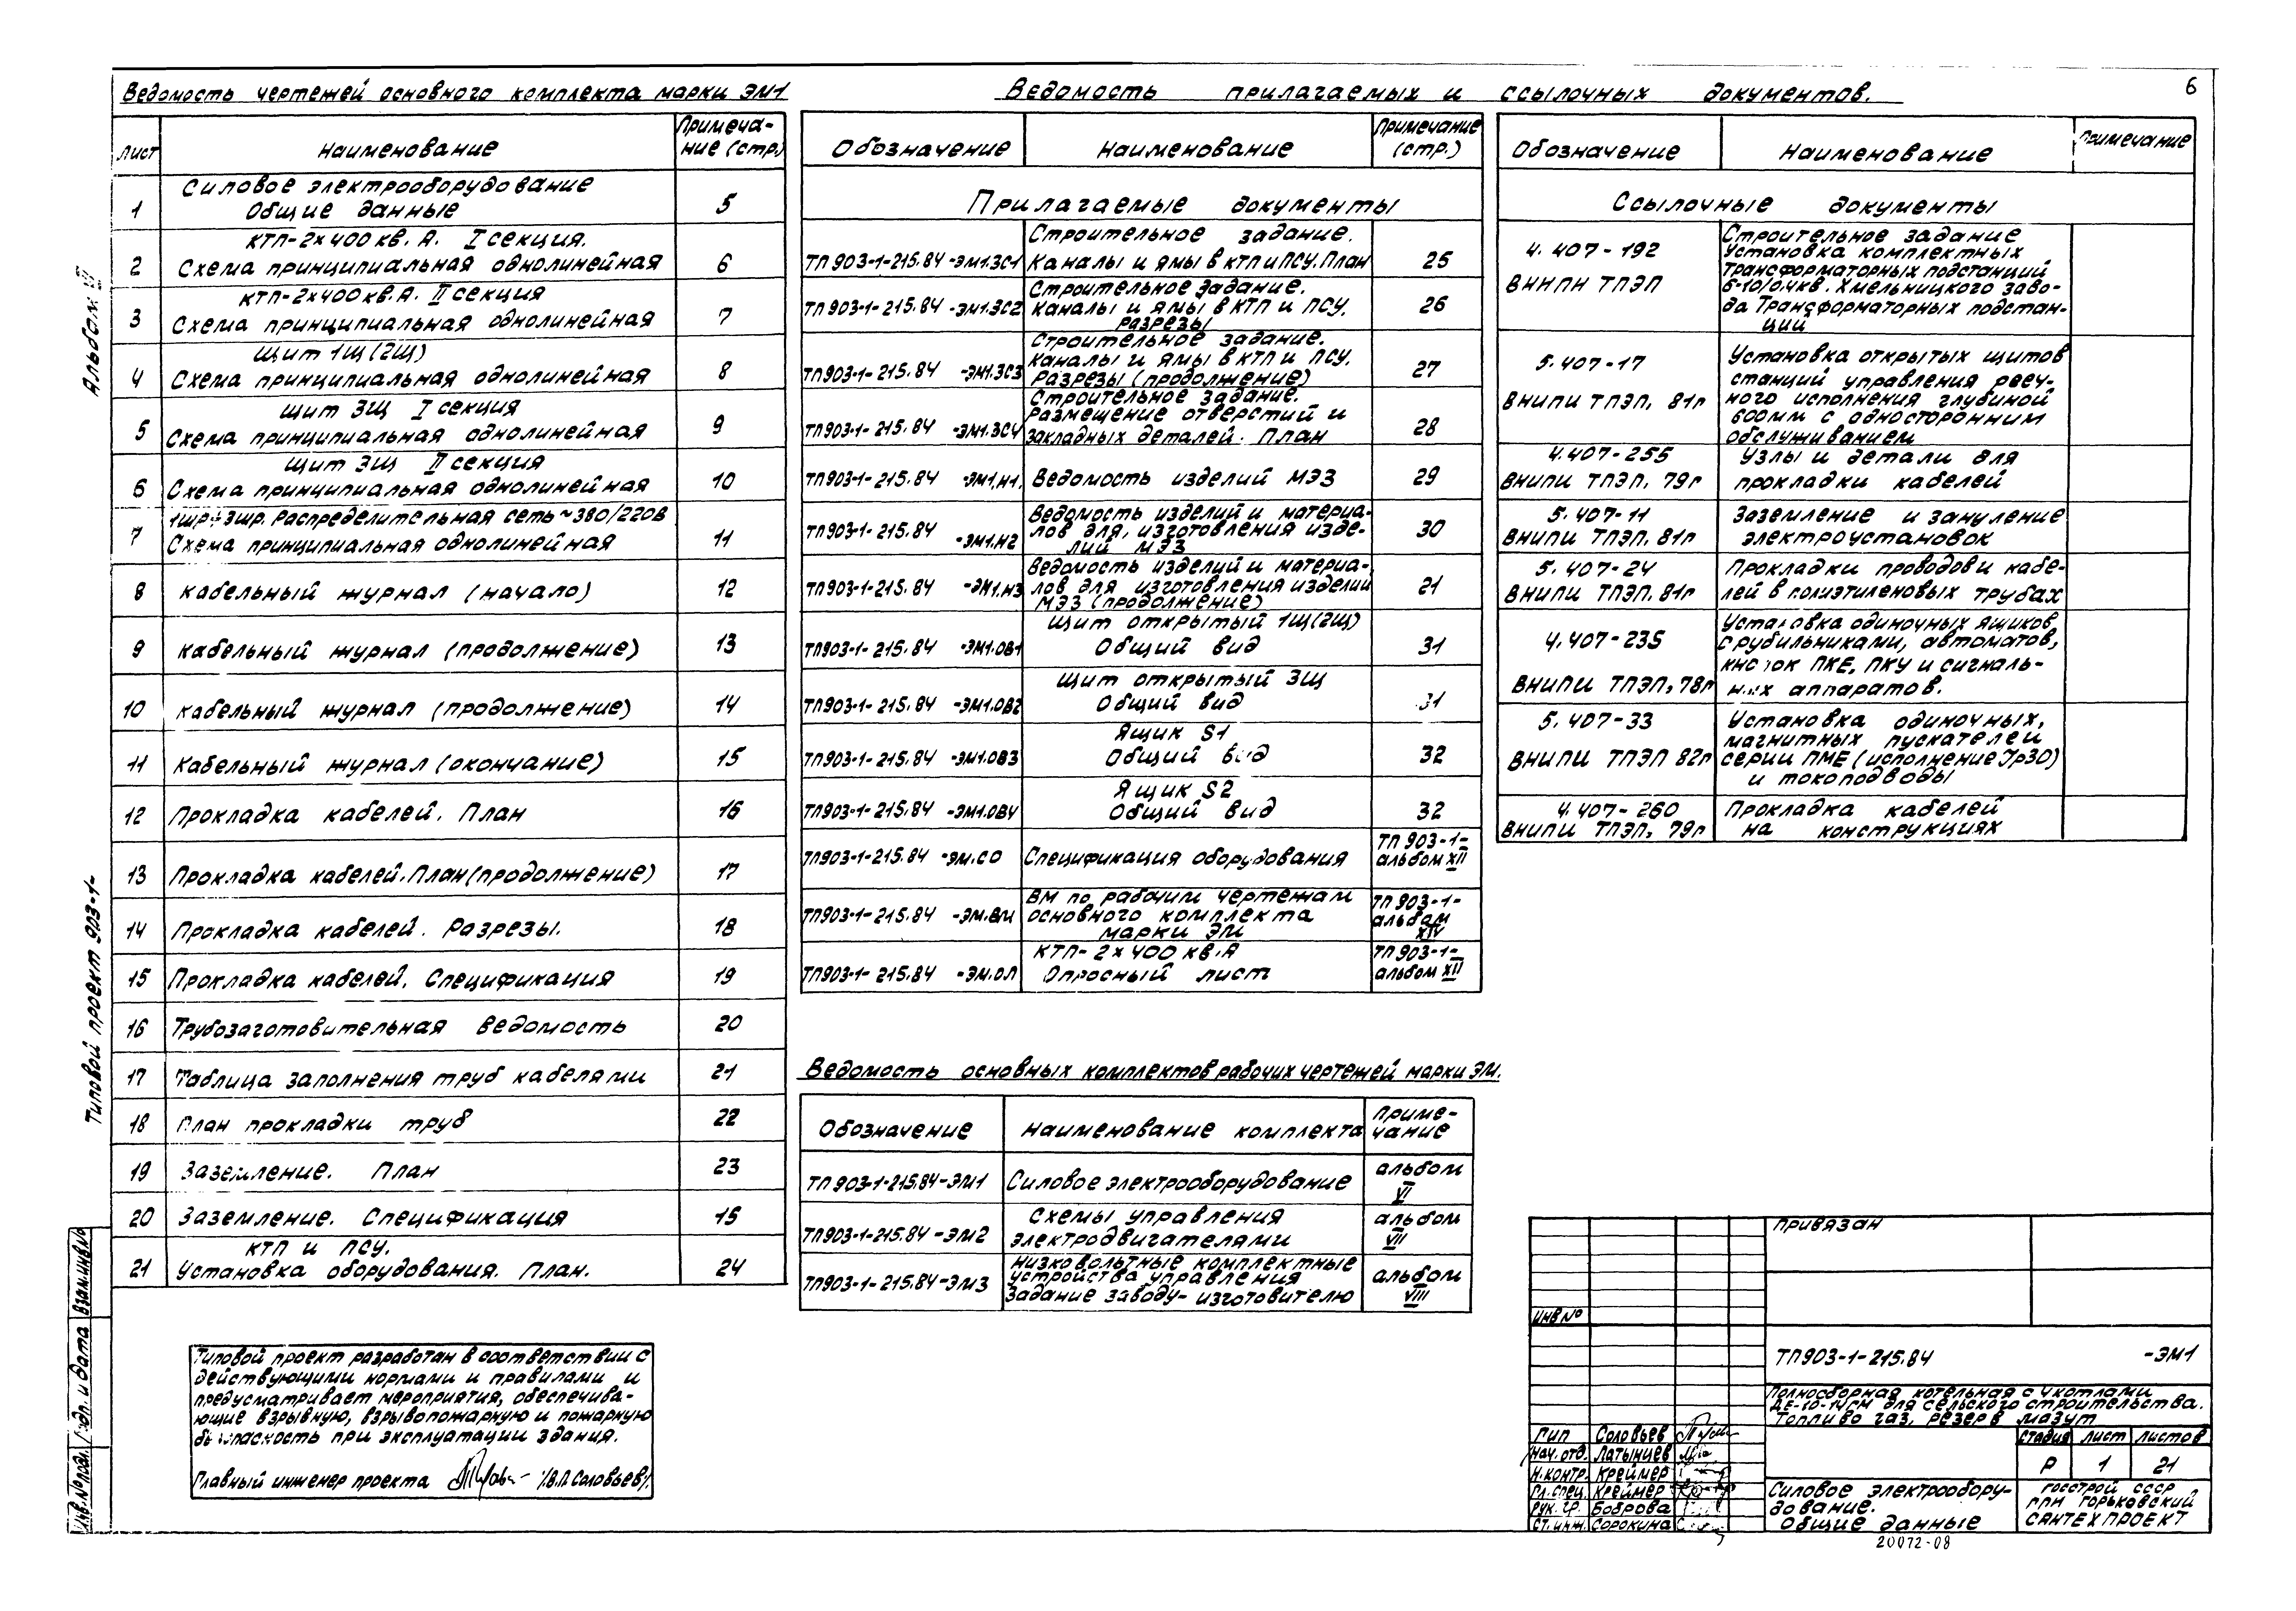 6
Ведомость чертежей основного комплекта марки ЭМ1
Лист
Наименование
Примеча-
ние (стр.)
1
Силовое электрооборудование
Общие данные
5
КТП-2×400 кв. А. I секция.
2
Схема принципиальная однолинейная
6
КТП-2×400 кв. А. II секция
3
Схема принципиальная однолинейная
7
Щит 1Щ(2Щ)
4
Схема принципиальная однолинейная
8
Щит 3Щ I секция
5
Схема принципиальная однолинейная
9
Щит 3Щ II секция
6
Схема принципиальная однолинейная
10
1шр÷3шр. Распределительная сеть ~380/220В
7
Схема принципиальная однолинейная
11
8
Кабельный журнал (начало)
12
9
Кабельный журнал (продолжение)
13
10
Кабельный журнал (продолжение)
14
11
Кабельный журнал (окончание)
15
12
Прокладка кабелей. План
16
13
Прокладка кабелей. План (продолжение)
17
14
Прокладка кабелей. Разрезы.
18
15
Прокладка кабелей. Спецификация
19
16
Трубозаготовительная ведомость
20
17
Таблица заполнения труб кабелями
21
18
План прокладки труб
22
19
Заземление. План
23
20
Заземление. Спецификация
15
КТП и ПСУ.
21
Установка оборудования. План.
24
Ведомость прилагаемых и ссылочных документов.
Обозначение
Наименование
Примечание
(стр.)
Прилагаемые документы
Строительное задание.
ТП 903-1-215.84 -ЭМ1.ЗС1
Каналы и ямы в КТП и ПСУ. План
25
Строительное задание.
ТП903-1-215.84 -ЭМ1.ЗС2
Каналы и ямы в КТП и ПСУ.
Разрезы
26
Строительное задание.
Каналы и ямы в КТП и ПСУ.
ТП903-1-215.84 -ЭМ1.ЗС3
Разрезы (продолжение)
27
Строительное задание.
Размещение отверстий и
ТП903-1-215.84 -ЭМ1.ЗС4
закладных деталей. План
28
ТП903-1-215.84 -ЭМ1.И1.
Ведомость изделий МЭЗ
29
Ведомость изделий и материа-
ТП903-1-215.84 -ЭМ1.И2
лов для, изготовления изде-
лий МЭЗ
30
Ведомость изделий и материа-
ТП903-1-215.84 -ЭМ1.И3
лов для изготовления изделий
МЭЗ (продолжение)
21
Щит открытый 1Щ(2Щ)
ТП903-1-215.84 -ЭМ1.ОВ1
Общий вид
31
Щит открытый 3Щ
ТП903-1-215.84 -ЭМ1.ОВ2
Общий вид
31
Ящик S1
ТП903-1-215.84 -ЭМ1.ОВ3
Общий вид
32
Ящик S2
ТП903-1-215.84 -ЭМ1.ОВ4
Общий вид
32
ТП903-1-215.84 -ЭМ.СО
Спецификация оборудования
ТП 903-1-
альбом XII
ВМ по рабочим чертежам
ТП903-1-215.84 -ЭМ.ВМ
основного комплекта
марки ЭМ
ТП 903-1-
альбом
XIV
КТП-2×400 кв.А
ТП903-1-215.84 -ЭМ.ОЛ
Опросный лист
ТП 903-1-
альбом XII
Обозначение
Наименование
Примечание
Ссылочные документы
4.407-192
ВНИПИ ТПЭП
Строительное задание
Установка комплектных
трансформаторных подстанций
6-10/0.4кв. Хмельницкого заво-
да Трансформаторных подстан-
ций
5.407-17
ВНИПИ ТПЭП, 81г
Установка открытых щитов
станций управления рееч-
ного исполнения глубиной
600мм с односторонним
обслуживанием
4.407-255
ВНИПИ ТПЭП, 79г
Узлы и детали для
прокладки кабелей
5.407-11
ВНИПИ ТПЭП. 81г
Заземление и зануление
электроустановок
5.407-24
ВНИПИ ТПЭП. 81г
Прокладки проводов и кабе-
лей в полиэтиленовых трубах
4.407-235
ВНИПИ ТПЭП, 78г
Установка одиночных ящиков,
с рубильниками, автоматов,
кнопок ПКЕ, ПКУ и сигналь-
ных аппаратов.
5.407-33
ВНИПИ ТПЭП 82г
Установка одиночных,
магнитных пускателей
серии ПМЕ (исполнение Jp30)
и токоподводы
4.407-260
ВНИПИ ТПЭП, 79г
Прокладка кабелей
на конструкциях
Ведомость основных комплектов рабочих чертежей марки ЭМ.
Обозначение
Наименование комплекта
Приме-
чание
ТП 903-1-215.84-ЭМ1
Силовое электрооборудование
альбом
VI
ТП903-1-215.84-ЭМ2
Схемы управления
электродвигателями
альбом
VII
ТП903-1-215.84-ЭМ3
Низковольтные комплектные
устройства управления
Задание заводу-изготовителю
альбом
VIII
Типовой проект разработан в соответствии с
действующими нормами и правилами и
предусматривает мероприятия, обеспечива-
ющие взрывную, взрывопожарную и пожарную
безопасность при эксплуатации здания.
Главный инженер проекта /В.П. Соловьев/
Привязан
Инв №
ТП903-1-215.84 -ЭМ1
Полносборная котельная с 4 котлами
ДЕ-10-14ГМ для сельского строительства.
Топливо газ, резерв мазут
ГИП Соловьев
Нач. отд. Латынцев
Н.контр. Креймер
Гл. спец. Креймер
Рук. гр. Боброва
Ст. инж. Сорокина
Стадия Лист Листов
Р 1 21
Силовое электрообору-
дование.
Общие данные
Госстрой СССР
ГПИ Горьковский
Сантехпроект
20072-08
Альбом VI
Типовой проект 903-1-
Взам.инв.№
Подп. и дата
Инв.№ подл.